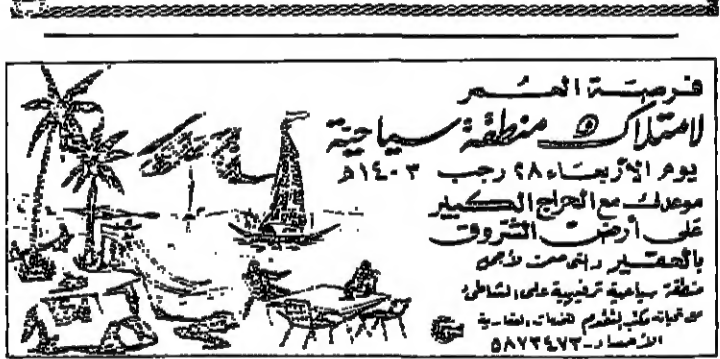 فرصة العمر
لامتلاك منطقة سياحية
يوم الأربعاء ٢٨ رجب ١٤٠٣هـ
موعدك مع الحراج الكبير
على أرض الشروق
بالعقير والتي صممت لأجمل
منطقة سياحية ترفيهية على الشاطئ
مكتب التقدم للخدمات العقارية
٥٨٧٣٤٧٣